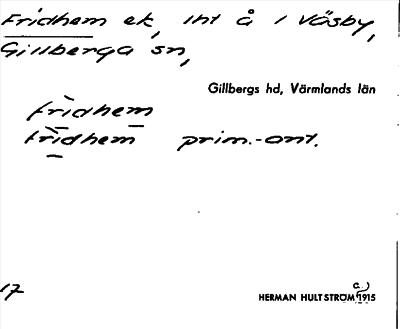 Fridhem ek, int å 1 Väsby,
Gillberga sn,
Gillbergs hd, Värmlands län
frìdhem
frìdhem prim.-ant.
17
HERMAN HULTSTRÖM c.) 1915